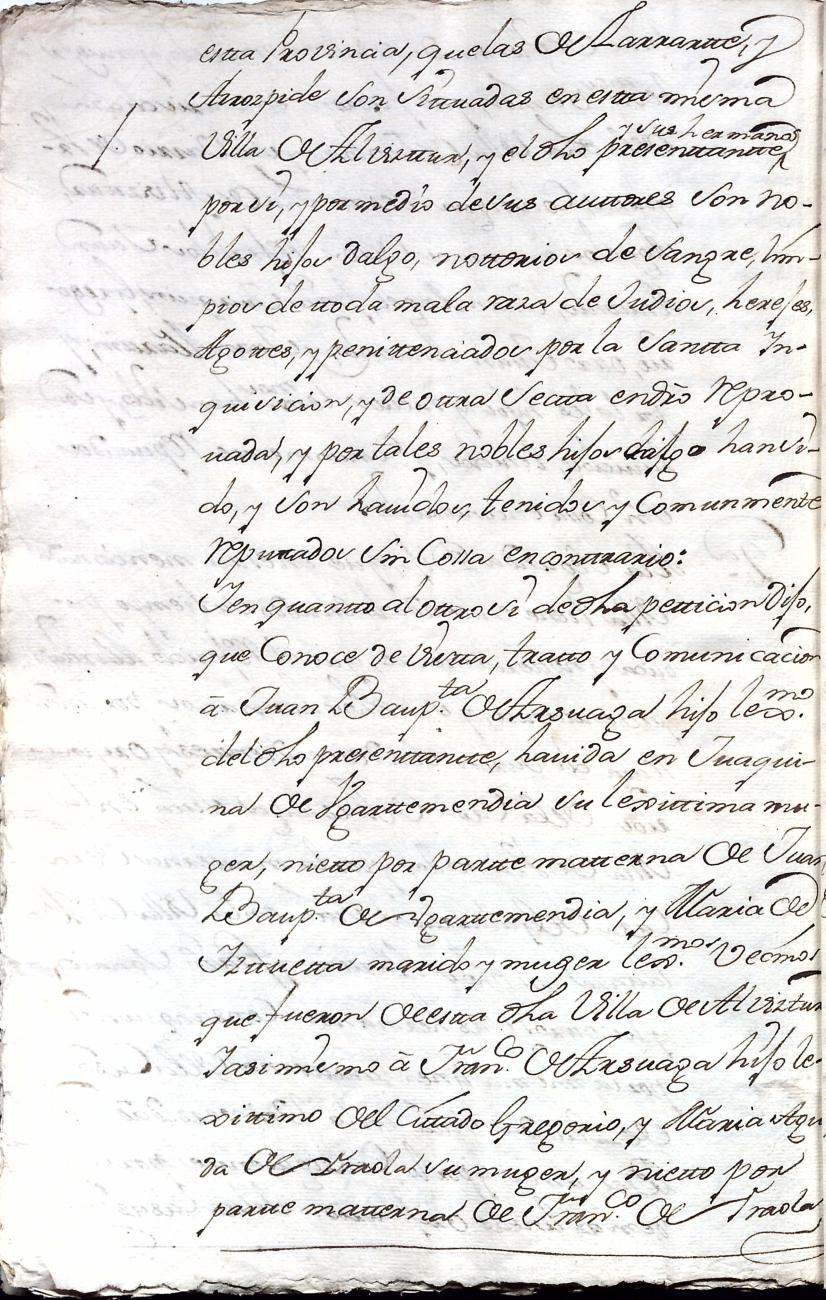 estta Provincia, quelas de Larrartte, y
Arozpide son sittuadas en estta misma
Villa de Alvizttur, y el dho presenttantte,
y sus hermanos
por si, y por medio de sus auttores son no-
bles hijos dalgo, nottorios de sangre, lim-
pios de ttoda mala raza de Judios, herejes,
Agottes, y penittenciados por la Santta In-
quisicion, y de ottra Sectta en dro repro-
uada, y por tales nobles hijos dalgo han si-
do, y son hauidos, tenidos y Comunmente
reputtados sin Cossa en conttrario:
I en quantto al ottro si de dha petticion Dijo,
que Conoce de vistta, tratto y Comunicacion
â Juan Baup.ta de Arsuaga hijo lexmo.
del dho presenttantte, havida en Juaqui-
na de Ygarttemendia su lexittima mu-
ger, nietto por partte matterna de Juan
Baup.ta de Igarttemendia, y Maria de
Izttuetta marido y muger lexmos. Vecinos
que fueron de estta dha Villa de Alvizttur
I asimismo â Fran.co de Arsuaga hijo le-
xittimo del Cittado Gregorio, y Maria Agu
da de Iraola su muger, y nietto por
partte matterna de Fran.co de Iraola